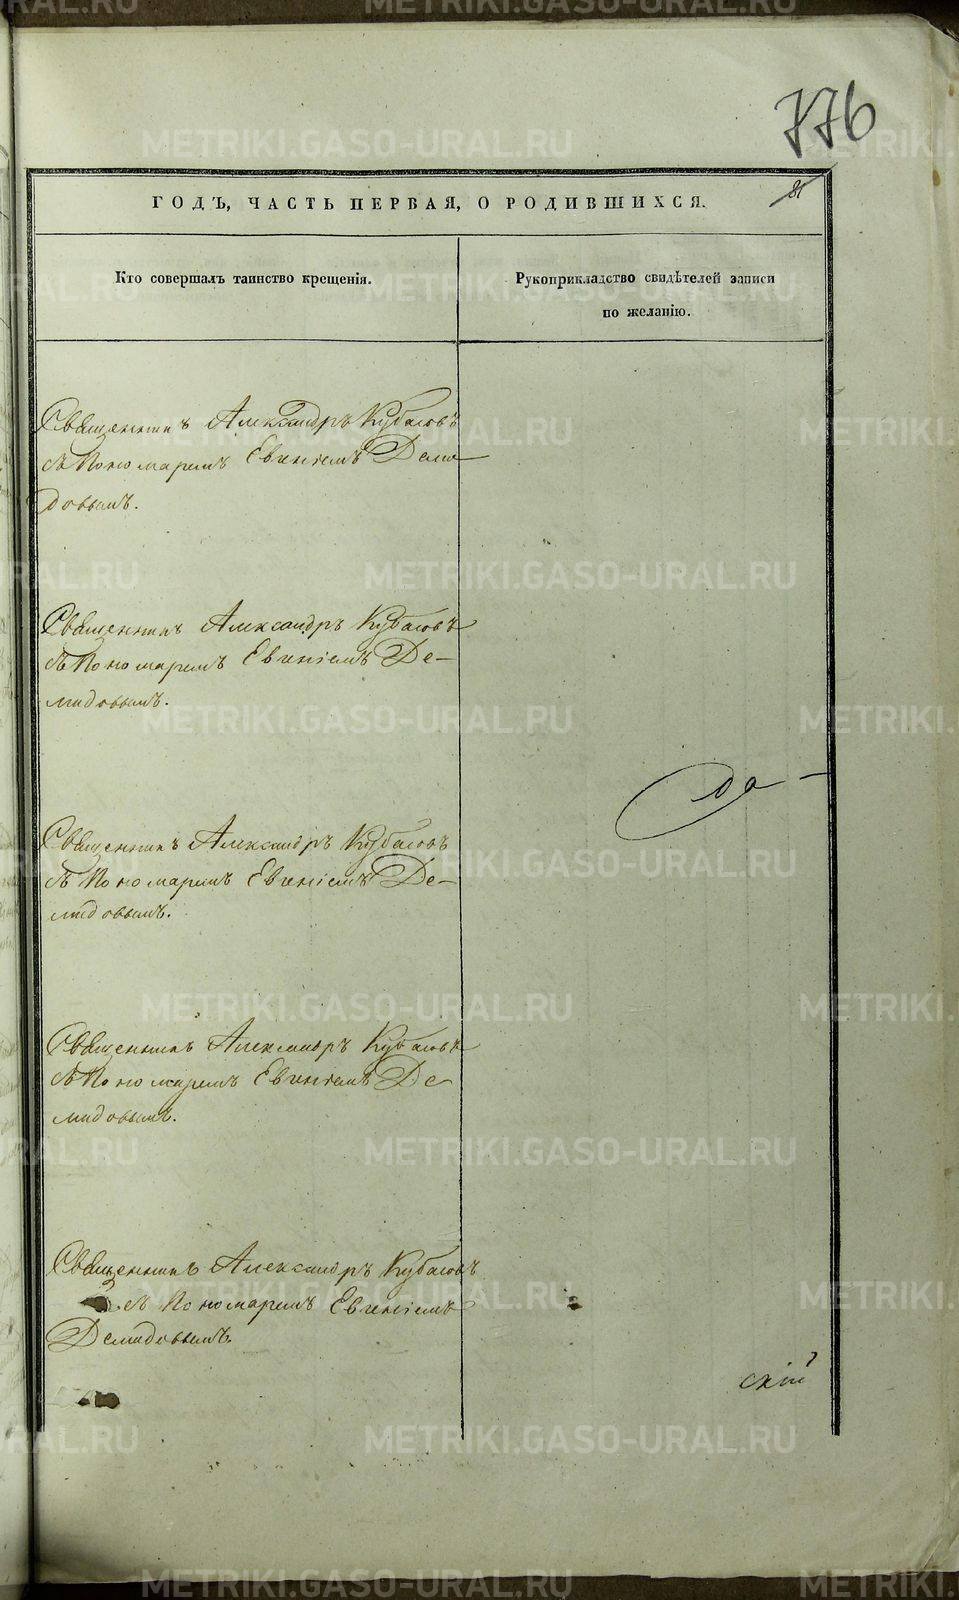 776
81
ГОДЪ, ЧАСТЬ ПЕРВАЯ, О РОДИВШИХСЯ.
Кто совершалъ таинство крещенія.
Рукоприкладство свидѣтелей записи
по желанію.
Священникъ Александръ Кубасовъ
съ Пономаремъ Евгеніемъ Деми
довымъ.
Священникъ Александръ Кубасовъ
съ Пономаремъ Евгеніемъ Де-
мидовымъ.
до -
Священникъ Александръ Кубасовъ
съ Пономаремъ Евгеніемъ Де-
мидовымъ.
Священникъ Александръ Кубасовъ
съ Пономаремъ Евгеніемъ Де
мидовымъ.
Священникъ Александръ Кубасовъ
съ Пономаремъ Евгеніемъ
Демидовымъ.
скій
METRIKI.GASO-URAL.RU